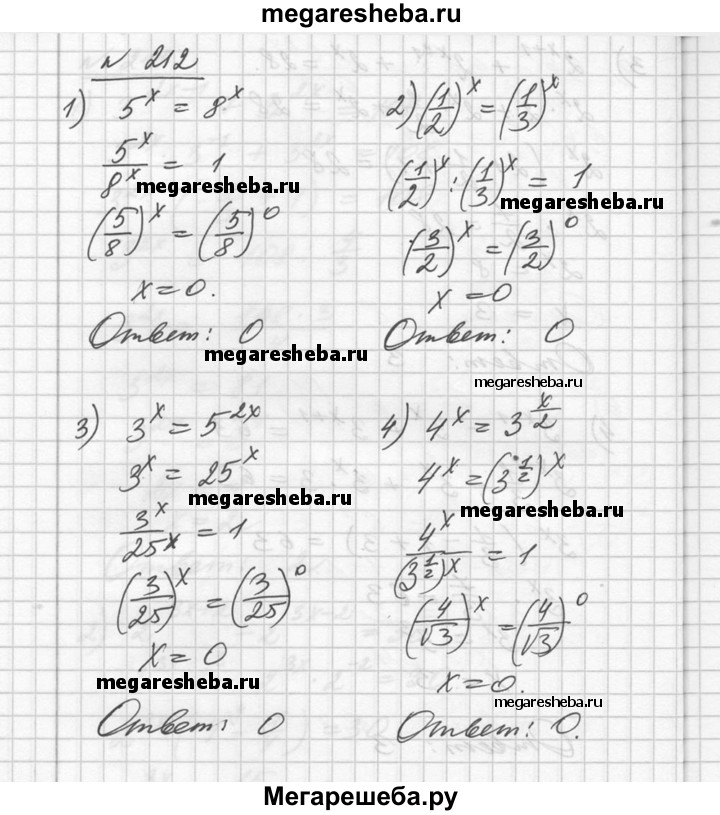 megaresheba.ru
№ 212
1) 5^x = 8^x
5^x/8^x = 1
megaresheba.ru
(5/8)^x = (5/8)^0
x = 0.
Ответ: 0
megaresheba.ru
2) (1/2)^x = (1/3)^x
(1/2)^x : (1/3)^x = 1
megaresheba.ru
(3/2)^x = (3/2)^0
x = 0
Ответ: 0
megaresheba.ru
3) 3^x = 5^2x
3^x = 25^x
megaresheba.ru
3^x/25^x = 1
(3/25)^x = (3/25)^0
x = 0
megaresheba.ru
Ответ: 0
4) 4^x = 3^x/2
4^x = (3^1/2)^x
megaresheba.ru
4^x/(3^1/2)^x = 1
(4/√3)^x = (4/√3)^0
x = 0.
megaresheba.ru
Ответ: 0.
Мегарешеба.ру